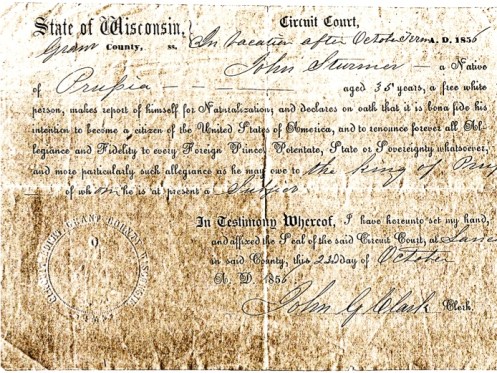 State of Wisconsin,
Circuit Court,
Grant County, ss. In Vacation after October Term A. D. 1855
John Sturmer — a Native
of Prussia — aged 35 years, a free white
person, makes report of himself for Naturalization; and declares on oath that it is bona fide his
intention to become a citizen of the United States of America, and to renounce forever all Al-
legiance and Fidelity to every Foreign Prince, Potentate, State or Sovereignty whatsoever,
and more particularly such allegiance as he may owe to the king of Prus
of whom he is at present a Subject
In Testimony Whereof, I have hereunto set my hand,
and affixed the Seal of the said Circuit Court, at Lanc
in said County, this 22d day of October
A. D. 1855
John G Clark Clerk.